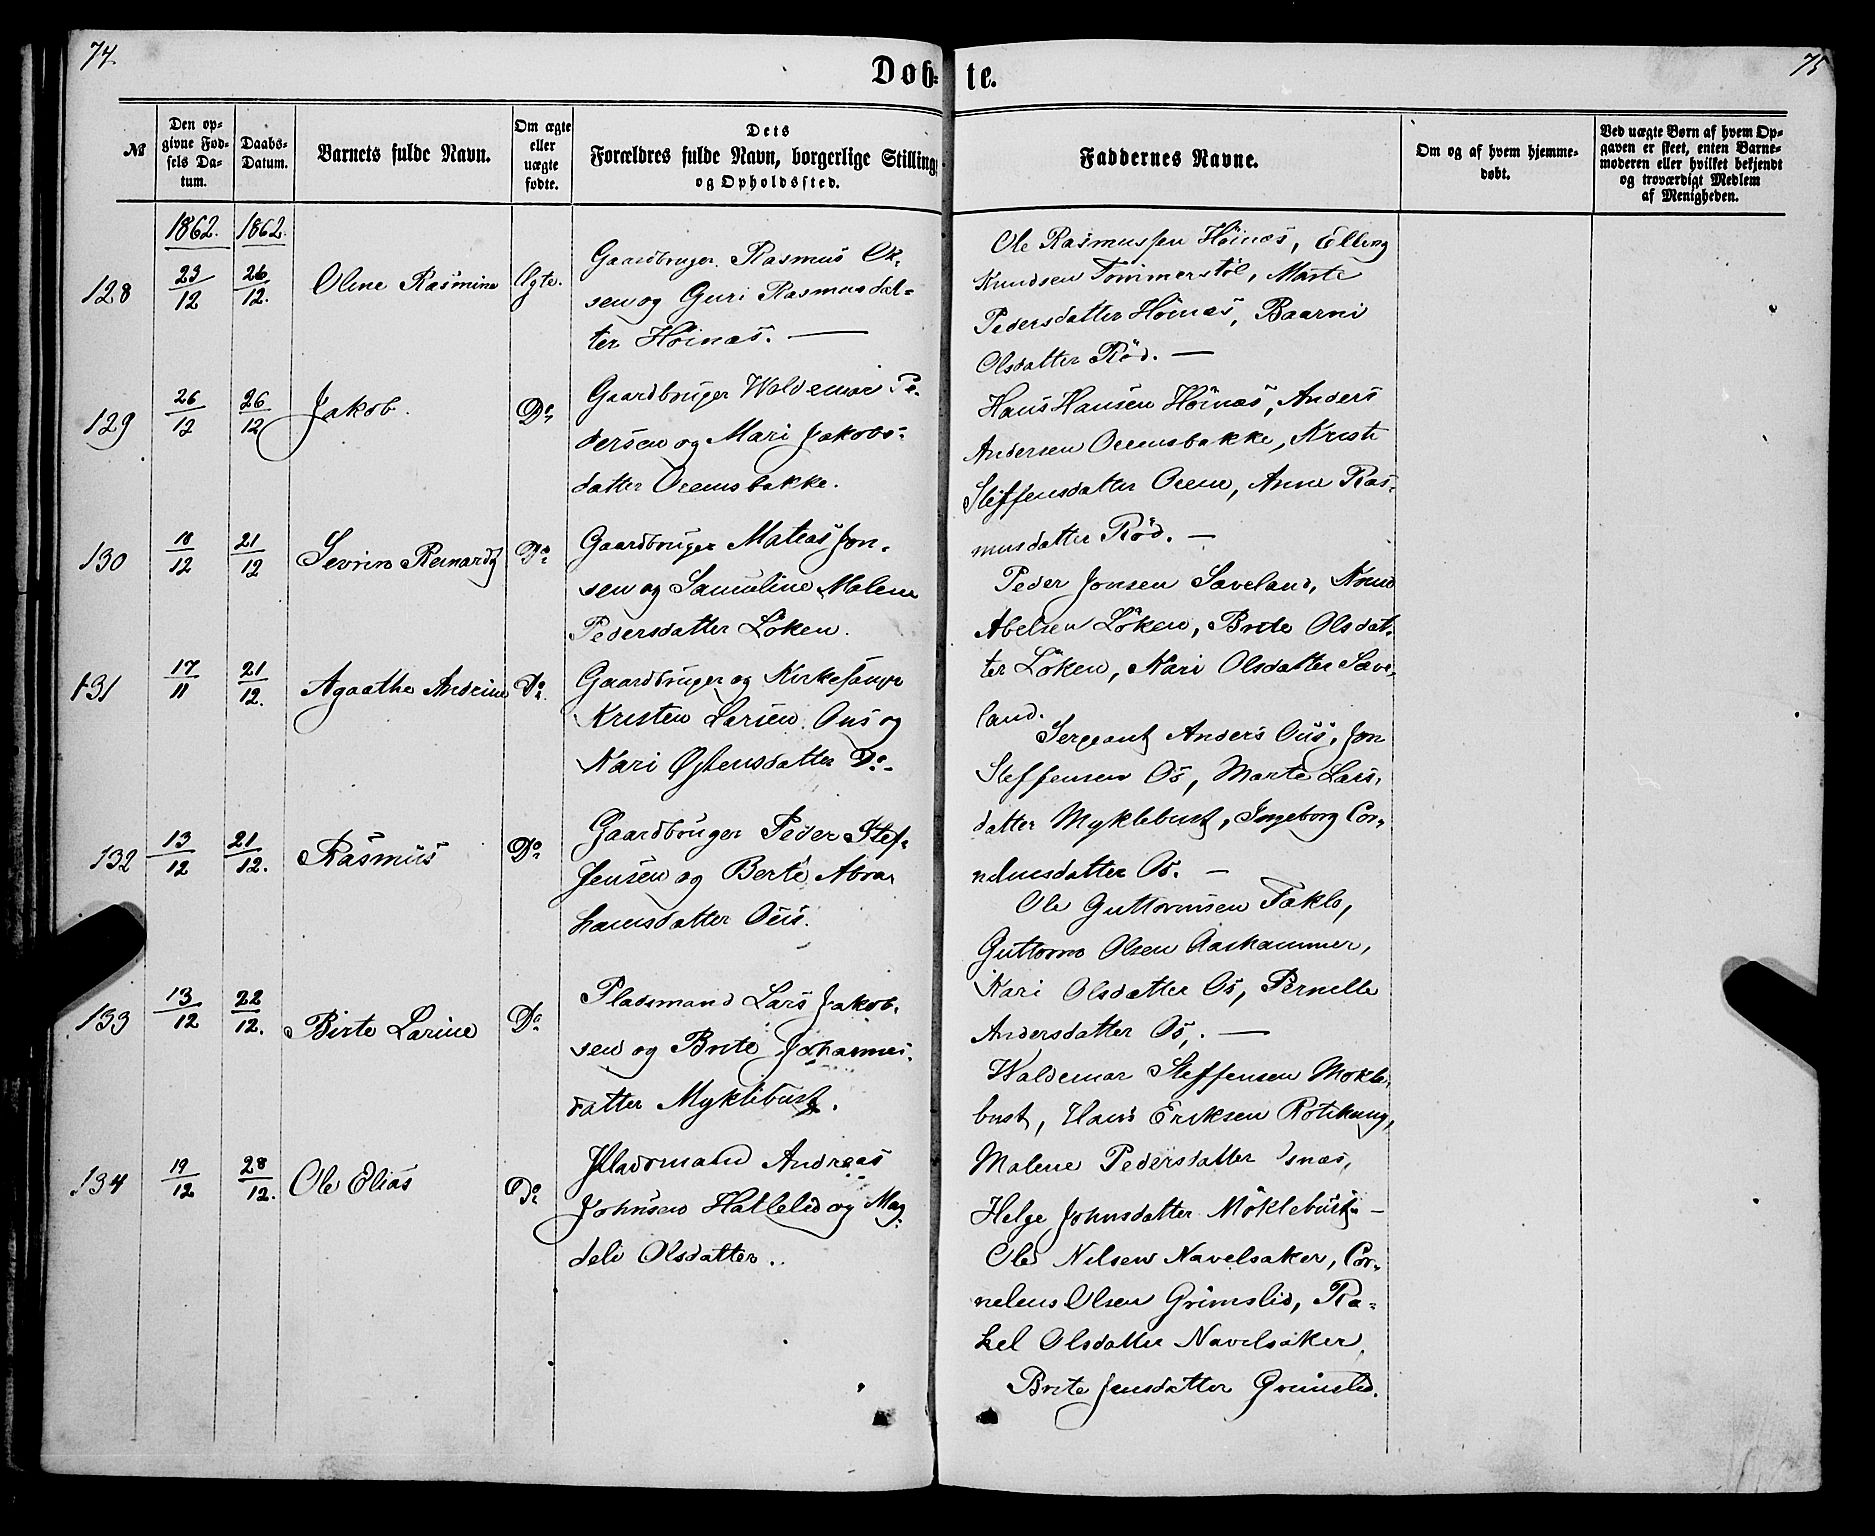 74.
75
Døb- te.
№
Den op-
givne Fød-
sels Da-
tum.
Daabs-
Datum.
Barnets fulde Navn.
Om ægte
eller
uægte
fødte.
Dets
Forældres fulde Navn, borgerlige Stilling,
og Opholdssted.
Faddernes Navne.
Om og af hvem hjemme-
døbt.
Ved uægte Børn af hvem Op-
gaven er skeet, enten Barne-
moderen eller hvilket bekjendt
og troværdigt Medlem
af Menigheden.
1862. 1862.
128 23/12 26/12. Oline Rasmine Ægte.
Gaardbruger Rasmus Ol-
sen og Guri Rasmusdat-
ter Höinæs. —
Ole Rasmussen Höinæs, Elling
Knudsen Tommerstöl, Marte
Pedersdatter Höinæs, Baarni
Olsdatter Rød. —
129 26/12 26/12 Jakob. Do
Gaardbruger Waldemar Pe-
dersen og Mari Jakobs-
datter Oremsbakke.
Hans Hansen Höinæs, Anders
Andersen Oremsbakke, Kristi
Steffensdatter Oreme, Anne Ras-
musdatter Rød. —
130 18/12 21/12 Sevrin Reinardt Do
Gaardbruger Mateas Jon-
sen og Samuline Malene
Pedersdatter Löken.
Peder Jonsen Saveland, Knud
Abelsen Löken, Brite Olsdat-
ter Löken, Kari Olsdatter Save-
land.
131 17/11 21/12. Agaathe Andrine Do
Gaardbruger og Kirkesanger
Kristen Larsen Ous og
Kari Østensdatter Do
Sergeant Anders Ous, Jon
Steffensen Os, Marte Lars-
datter Myklebust, Ingeborg Cor-
neliusdatter Os. —
132 13/12 21/12. Rasmus Do
Gaardbruger Peder Stef-
fensen og Berte Abra-
hamsdatter Ous.
Ole Guttormsen Taklo,
Guttorm Olsen Aashammer,
Kari Olsdatter Os, Pernelle
Andersdatter Os. —
133 13/12 22/12. Birte Larine Do
Pladsmand Lars Jakob-
sen og Brite Johannes-
datter Myklebust.
Waldemar Steffensen Mokle-
bust, Hans Eriksen Rotihaug,
Malene Pedersdatter Isnæs,
Helge Johnsdatter Möklebust —
134 19/12 28/12. Ole Elias Do
Pladsmand Andreas
Johnsen Hallelid og Mag-
deli Olsdatter.
Ole Nilsen Navelsaker, Cor-
nelius Olsen Grimslid, Ra-
kel Olsdatter Navelsaker,
Brite Jensdatter Grimslid.